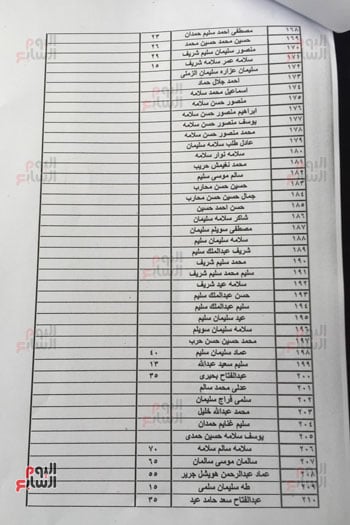 ١٦٨ مصطفى احمد سليم حمدان ٢٣
١٦٩ حسين محمد حسين محمد ٢٦
١٧٠ منصور سليمان سليم شريف ٢٩
١٧١ سلامه عمر سلامه شريف ١٥
١٧٢ سليمان عزاره سليمان الزملى
١٧٣ احمد جلال حماد
١٧٤ اسماعيل محمد سلامه
١٧٥ منصور حسن سلامه
١٧٦ ابراهيم منصور حسن سلامه
١٧٧ يوسف منصور حسن سلامه
١٧٨ محمد منصور حسن سلامه
١٧٩ عادل طلب سلامه سليمان
١٨٠ سلامه نوار سلامه
١٨١ محمد نغيمش حريب
١٨٢ سالم موسى سليم
١٨٣ حسين حسن محارب
١٨٤ جمال حسين حسن محارب
١٨٥ حسن احمد حسين
١٨٦ شاكر سلامه سليمان
١٨٧ مصطفى سويلم سليمان
١٨٨ سلامه سليمان سليم
١٨٩ شريف عبدالملك سليم
١٩٠ محمد سليم شريف
١٩١ سليم محمد سليم شريف
١٩٢ سلامه عيد شريف
١٩٣ حسن عبدالملك سليم
١٩٤ سليم عبدالملك سليم
١٩٥ عيد سليمان سليم
١٩٦ سلامه سليمان سويلم
١٩٧ محمد حسين حسن حرب
١٩٨ عماد سليمان سليم ٤٠
١٩٩ سليم سعيد عبدالله ١٣
٢٠٠ عبدالفتاح بحيرى ٣٥
٢٠١ عدلى محمد سالم
٢٠٢ سلمى فراج سليمان
٢٠٣ محمد عبدالله خليل
٢٠٤ سليم غنايم حمدان
٢٠٥ يوسف سلامه حسين حمدى
٢٠٦ سلامه سالم سلامه ٧٠
٢٠٧ سالمان موسى سالمان ٦٥
٢٠٨ عماد عبدالرحمن هويشل جرير ٥٥
٢٠٩ طه سليمان سلمى ١٥
٢١٠ عبدالفتاح سعد حامد عيد ٣٥
اليوم السابع